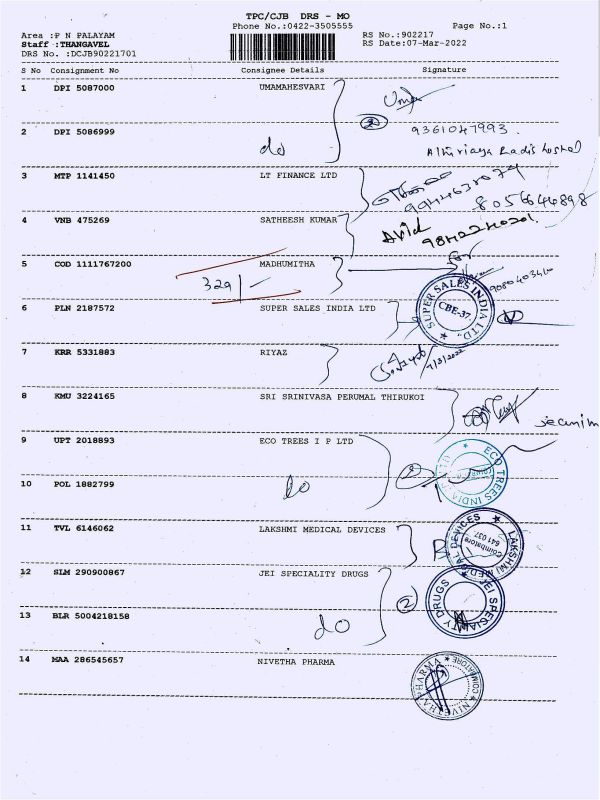 TPC/CJB DRS - MO
Phone No.:0422-3505555
Page No.:1
Area :P N PALAYAM
Staff :THANGAVEL
DRS No. :DCJB90221701
RS No.:902217
RS Date:07-Mar-2022
S No Consignment No Consignee Details Signature
1 DPI 5087000 UMAMAHESVARI
Uma
2
2 DPI 5086999
do
9361047993.
hostel
3 MTP 1141450 LT FINANCE LTD
8056644898
4 VNB 475269 SATHEESH KUMAR
David
5 COD 1111767200 MADHUMITHA
for
329/-
6 PLN 2187572 SUPER SALES INDIA LTD
SUPER SALES INDIA LTD.
CBE-37.
7 KRR 5331883 RIYAZ
7/3/2022
8 KMU 3224165 SRI SRINIVASA PERUMAL THIRUKOI
9 UPT 2018893 ECO TREES I P LTD
ECO TREES INDIA
2
10 POL 1882799
do
11 TVL 6146062 LAKSHMI MEDICAL DEVICES
LAKSHMI MEDICAL DEVICES
Coimbatore
641 037
12 SLM 290900867 JEI SPECIALITY DRUGS
JEI SPECIALITY DRUGS
2
13 BLR 5004218158
do
14 MAA 286545657 NIVETHA PHARMA
NIVETHA PHARMA
COIMBATORE